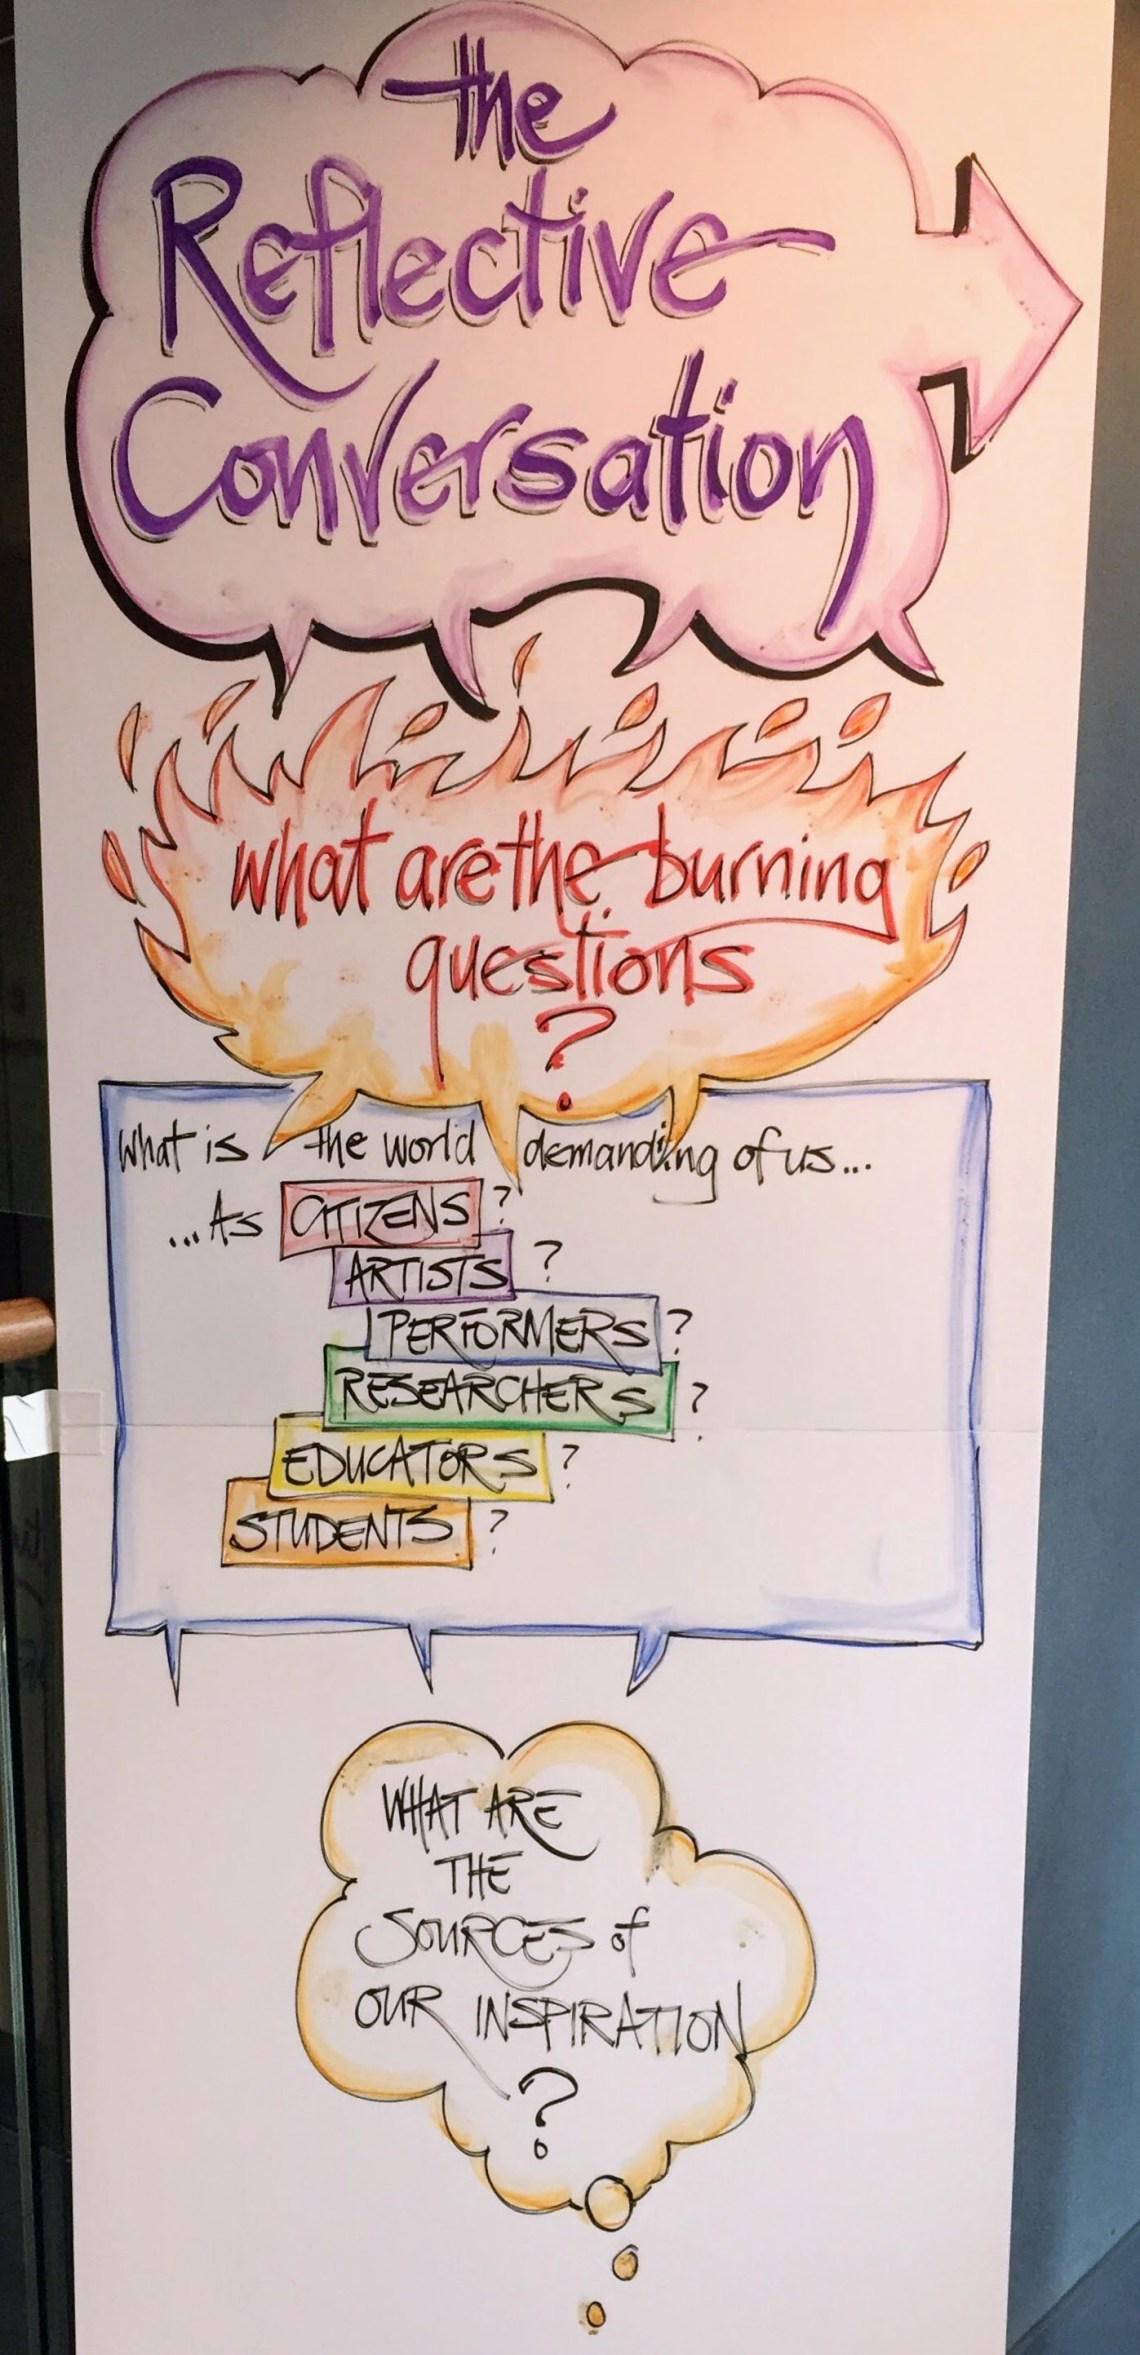 the
Reflective
Conversation
what are the burning
questions
?
What is the world demanding of us...
...As CITIZENS ?
ARTISTS ?
PERFORMERS ?
RESEARCHERS ?
EDUCATORS ?
STUDENTS ?
WHAT ARE
THE
SOURCES of
OUR INSPIRATION
?